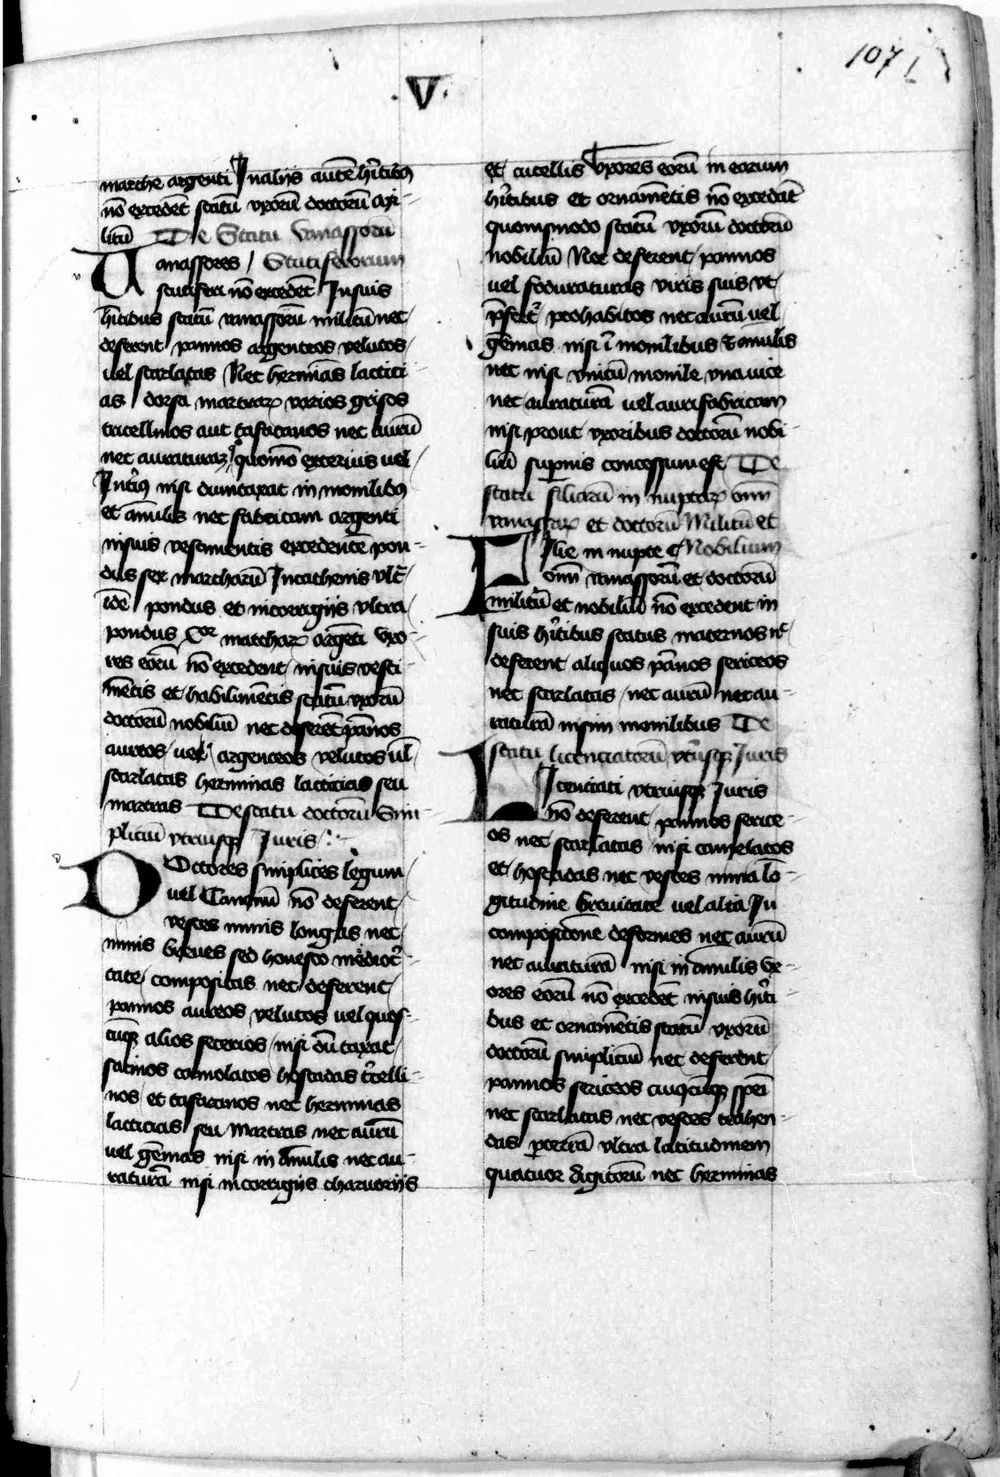 107
.V.
marche argenti Jn alijs autē hītibus
nō excedēt statū vxorū doctorū mi-
litū De Statu vanassorū
Vanassores / Scutiferorum
scutiferi nō excedēt Jn suis
hītibus statū vanassorū militū nec
deferent pannos argenteos velutos
uel scarlatas Nec herminas lactici
as dorsa martraꝝ varios grisos
tricellinos aut tafatanos nec aurū
nec auraturaꝫ quomō exterius uel
Jntᵉius nisi duntaxat in monilibus
et anulis nec fabricam argenti
in suis vestimentis excedentē pon-
dus sex marcharū Jn cathenis vltᵃ
idē pondus et in corrigijs vltra
pondus marchaꝝ argēti vxo-
res eorū nō excedent in suis vesti
mētis et habilimētis statū vxorū
doctorū nobiliū nec deferēt pānos
aureos uel argenteos velutos ul
scarlatas herminas lacticias seu
martras De statu doctorū Sim
pliciū vtriusqꝫ Juris
Doctores simplices legum
uel Canonū nō deferent
vestes nimis longas nec
nimis breues sed honesto mediocⁱ-
tate compositas nec deferent
pannos aureos velutos uel quos-
cūqꝫ alios sericeos nisi dū taxat
satinos camolatos hostadas tⁱcelli-
nos et tafatanos nec herminas
lacticias seu martras nec aurū
uel gēmas nisi in anulis nec au-
raturā nisi in corrigijs
et cutellis Vxores eorū in eorum
hītibus et ornamētis nō excedāt
quomōdo statū vxorū doctorū
nobiliū Nec deferent pannos
uel foduraturas viris suis vt
pᵉfertᵘʳ prohibitos nec aurū uel
gēmas nisi ī monilibus & anulis
nec nisi vnicū monile vna vice
nec auraturā uel aurifabricam
nisi prout vxoribus doctorū nobi-
liū supᵉius concessum est De
statu filiarū in nuptaꝝ oīm
vanassaꝝ et doctorū Militū et
Filie in nupte Nobilium
oīm vanassorū et doctorū
militū et nobiliū nō excedent in
suis hītibus status maternos nᶜ
deferent aliquos pānos sericeos
nec scarlatas nec aurū nec au-
raturā nisi in monilibus De
statu licenciatorū vtⁱusqꝫ Juris
Licenciati vtriusqꝫ Juris
nō deferent pannos serice-
os nec scarlatas nisi camelatos
et hostadas nec vestes nimia lō-
gitudine breuitate uel alia Jn
composicōne deformes nec aurū
nec auraturā nisi in anulis Vx-
ores eorū nō excedēt in suis hīti
bus et ornamētis statū vxorū
doctorū simpliciū nec deferent
pannos sericeos cuiuscūqꝫ spēi
nec scarlatas nec vestes trahen-
das pᵉ terrā vltra latitudinem
quatuor digitorū nec herminas